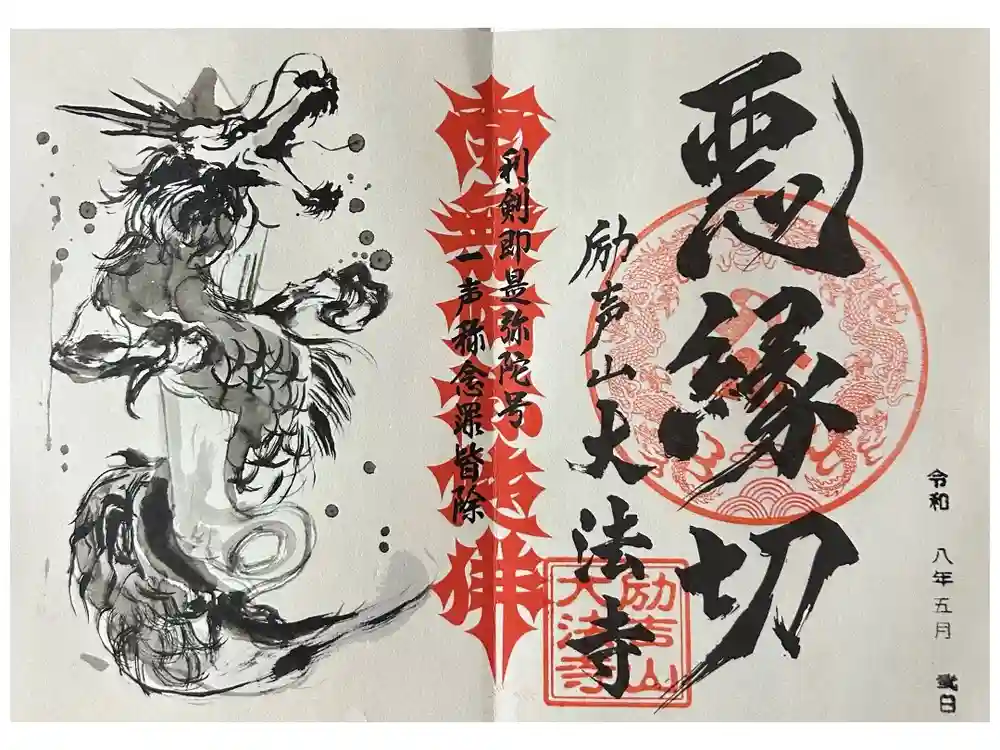 令和 八年五月 弐日
悪縁切
励声山大法寺
励声山
大法寺
利剣即是弥陀号
一声称念罪皆除
南無阿弥陀佛